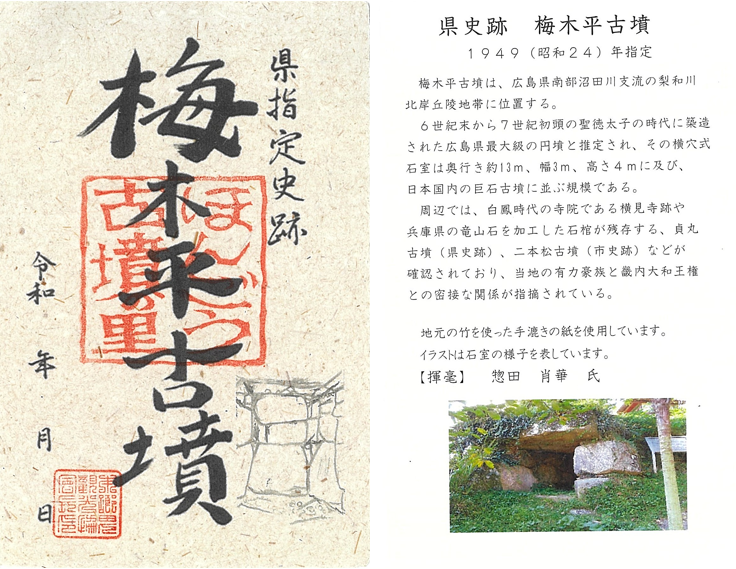 県指定史跡
梅木平古墳
ほんごう
古墳の里
令和　年　月　日
県史跡　梅木平古墳
１９４９（昭和２４）年指定
梅木平古墳は、広島県南部沼田川支流の梨和川
北岸丘陵地帯に位置する。
６世紀末から７世紀初頭の聖徳太子の時代に築造
された広島県最大級の円墳と推定され、その横穴式
石室は奥行き約13ｍ、幅3ｍ、高さ４ｍに及び、
日本国内の巨石古墳に並ぶ規模である。
周辺では、白鳳時代の寺院である横見寺跡や
兵庫県の竜山石を加工した石棺が残存する、貞丸
古墳（県史跡）、二本松古墳（市史跡）などが
確認されており、当地の有力豪族と畿内大和王権
との密接な関係が指摘されている。
地元の竹を使った手漉きの紙を使用しています。
イラストは石室の様子を表しています。
【揮毫】　惣田　肖華　氏